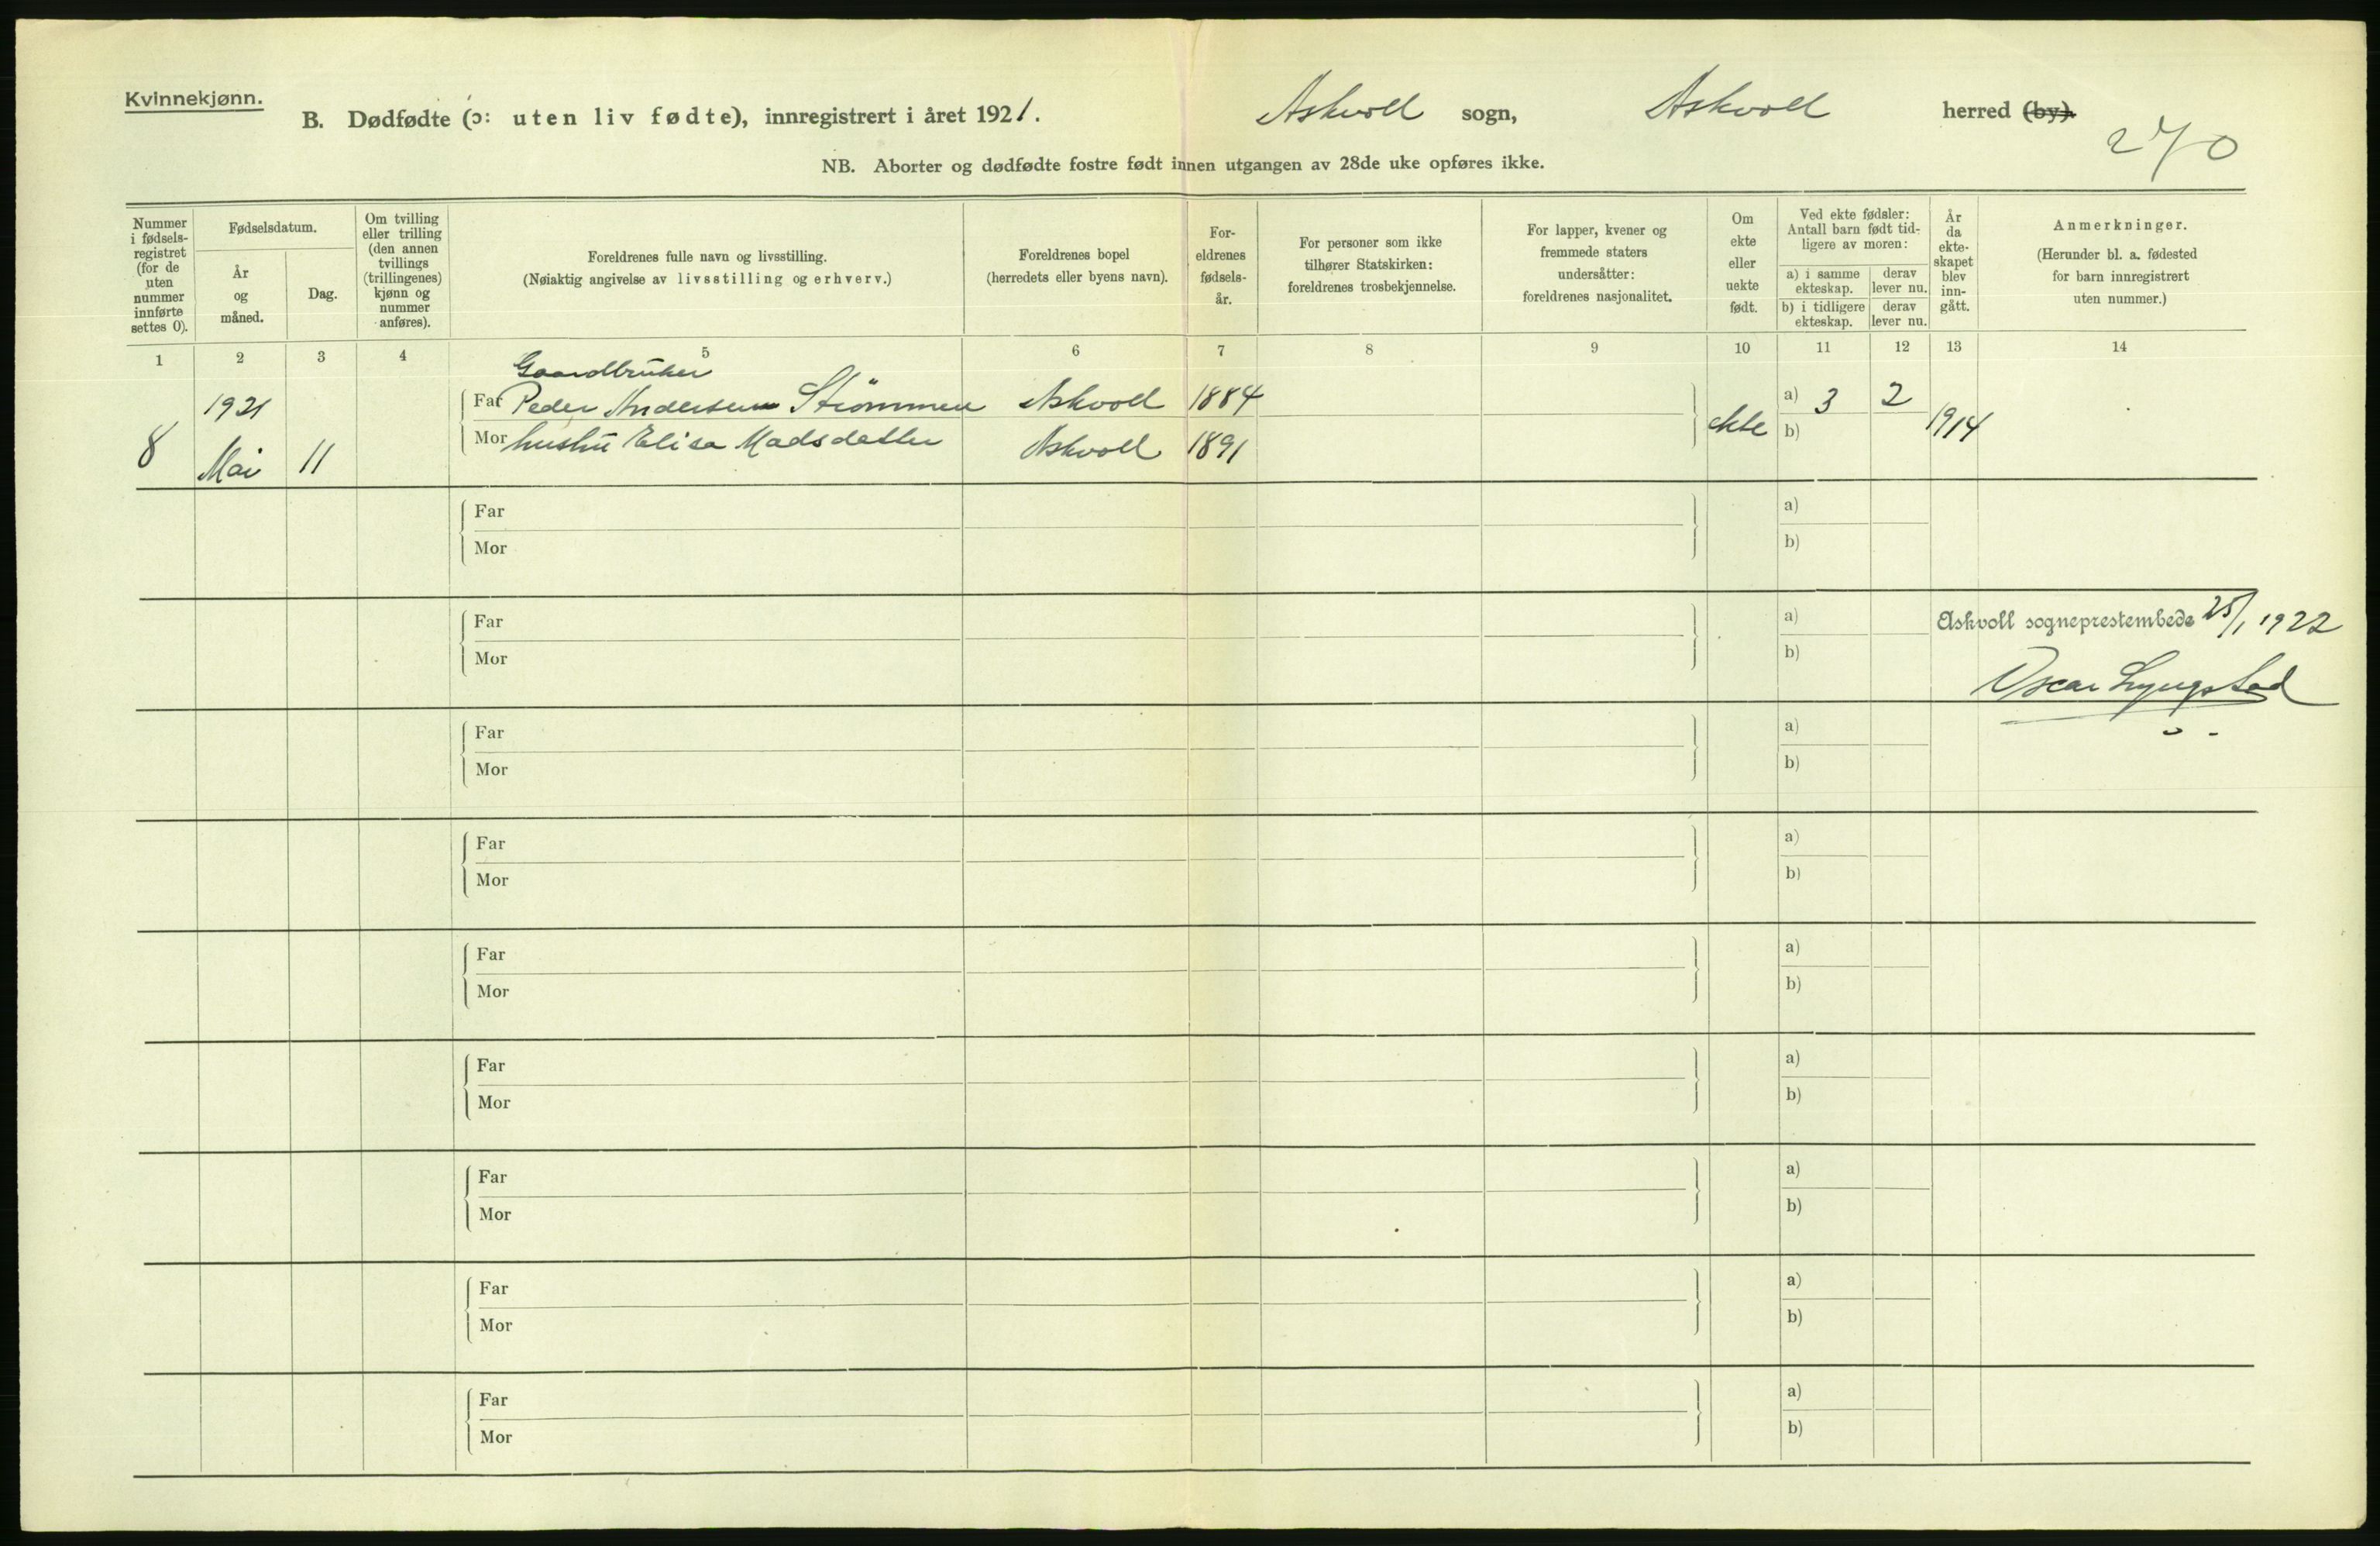 Kvinnekjønn.
B. Dødfødte (ɔ: uten liv fødte), innregistrert i året 1921. Askvoll sogn, Askvoll herred (by).
270
NB. Aborter og dødfødte fostre født innen utgangen av 28de uke opføres ikke.
Nummer
i fødsels-
registret
(for de
uten
nummer
innførte
settes 0).
Fødselsdatum.
År
og
måned.
Dag.
Om tvilling
eller trilling
(den annen
tvillings
(trillingenes)
kjønn og
nummer
anføres).
Foreldrenes fulle navn og livsstilling.
(Nøiaktig angivelse av livsstilling og erhverv.)
Foreldrenes bopel
(herredets eller byens navn).
For-
eldrenes
fødsels-
år.
For personer som ikke
tilhører Statskirken:
foreldrenes trosbekjennelse.
For lapper, kvener og
fremmede staters
undersåtter:
foreldrenes nasjonalitet.
Om
ekte
eller
uekte
født.
Ved ekte fødsler:
Antall barn født tid-
ligere av moren:
a) i samme
ekteskap.
derav
lever nu.
b) i tidligere
ekteskap.
derav
lever nu.
År
da
ekte-
skapet
blev
inn-
gått.
Anmerkninger.
(Herunder bl. a. fødested
for barn innregistrert
uten nummer.)
1 2 3 4 5 6 7 8 9 10 11 12 13 14
Gaardbruker
1921 Far Peder Andersen Strömmen Askvoll 1884 a) 3 2
8 Mai 11 Mor hustru Elisa Madsdatter Askvoll 1891 ekte b) 1914
Far a)
Mor b)
Far a) Askvoll sogneprestembede 25/1 1922
Mor b)
Oscar Lyngstad
Far a)
Mor b)
Far a)
Mor b)
Far a)
Mor b)
Far a)
Mor b)
Far a)
Mor b)
Far a)
Mor b)
Far a)
Mor b)